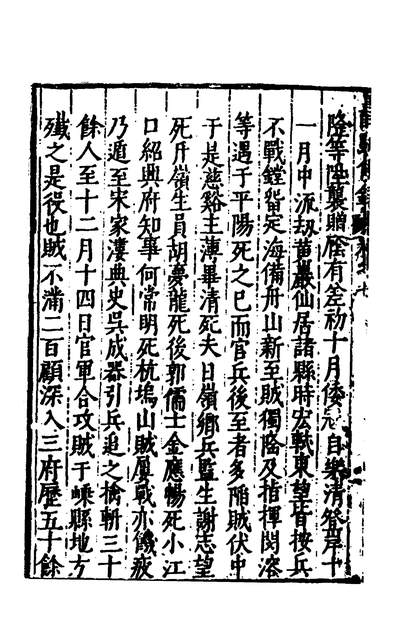 隆等陞襲贈廕有差初十月倭自樂清登岸十
一月中流刼黄巖仙居諸縣時宏軾東望皆按兵
不戰鏜留定海備舟山新至賊獨隆及指揮閔溶
等遇于平陽死之已而官兵後至者多陷賊伏中
于是慈谿主薄畢清死夫日嶺鄉兵監生謝志望
死斤嶺生員胡夢龍死後郭儒士金應暢死小江
口紹興府知事何常明死杭塢山賊屢戰亦饑疲
乃遁至宋家漊典史吳成器引兵追之擒斬三十
餘人至十二月十四日官軍合攻賊于嵊縣地方
殲之是役也賊不滿二百顧深入三府歷五十餘